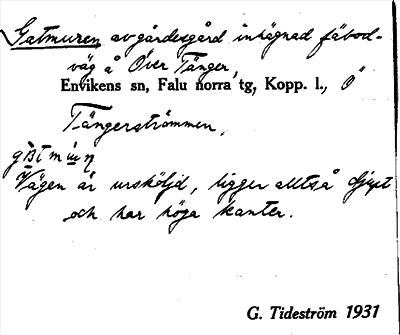 Gatmuren av gärdesgård inhägnad fäbod-
väg å Över Tänger,
Envikens sn, Falu norra tg, Kopp. l., Ö
Tängerströmmen,
Vägen är ursköljd, ligger alltså djupt
och har höga kanter.
G. Tideström 1931